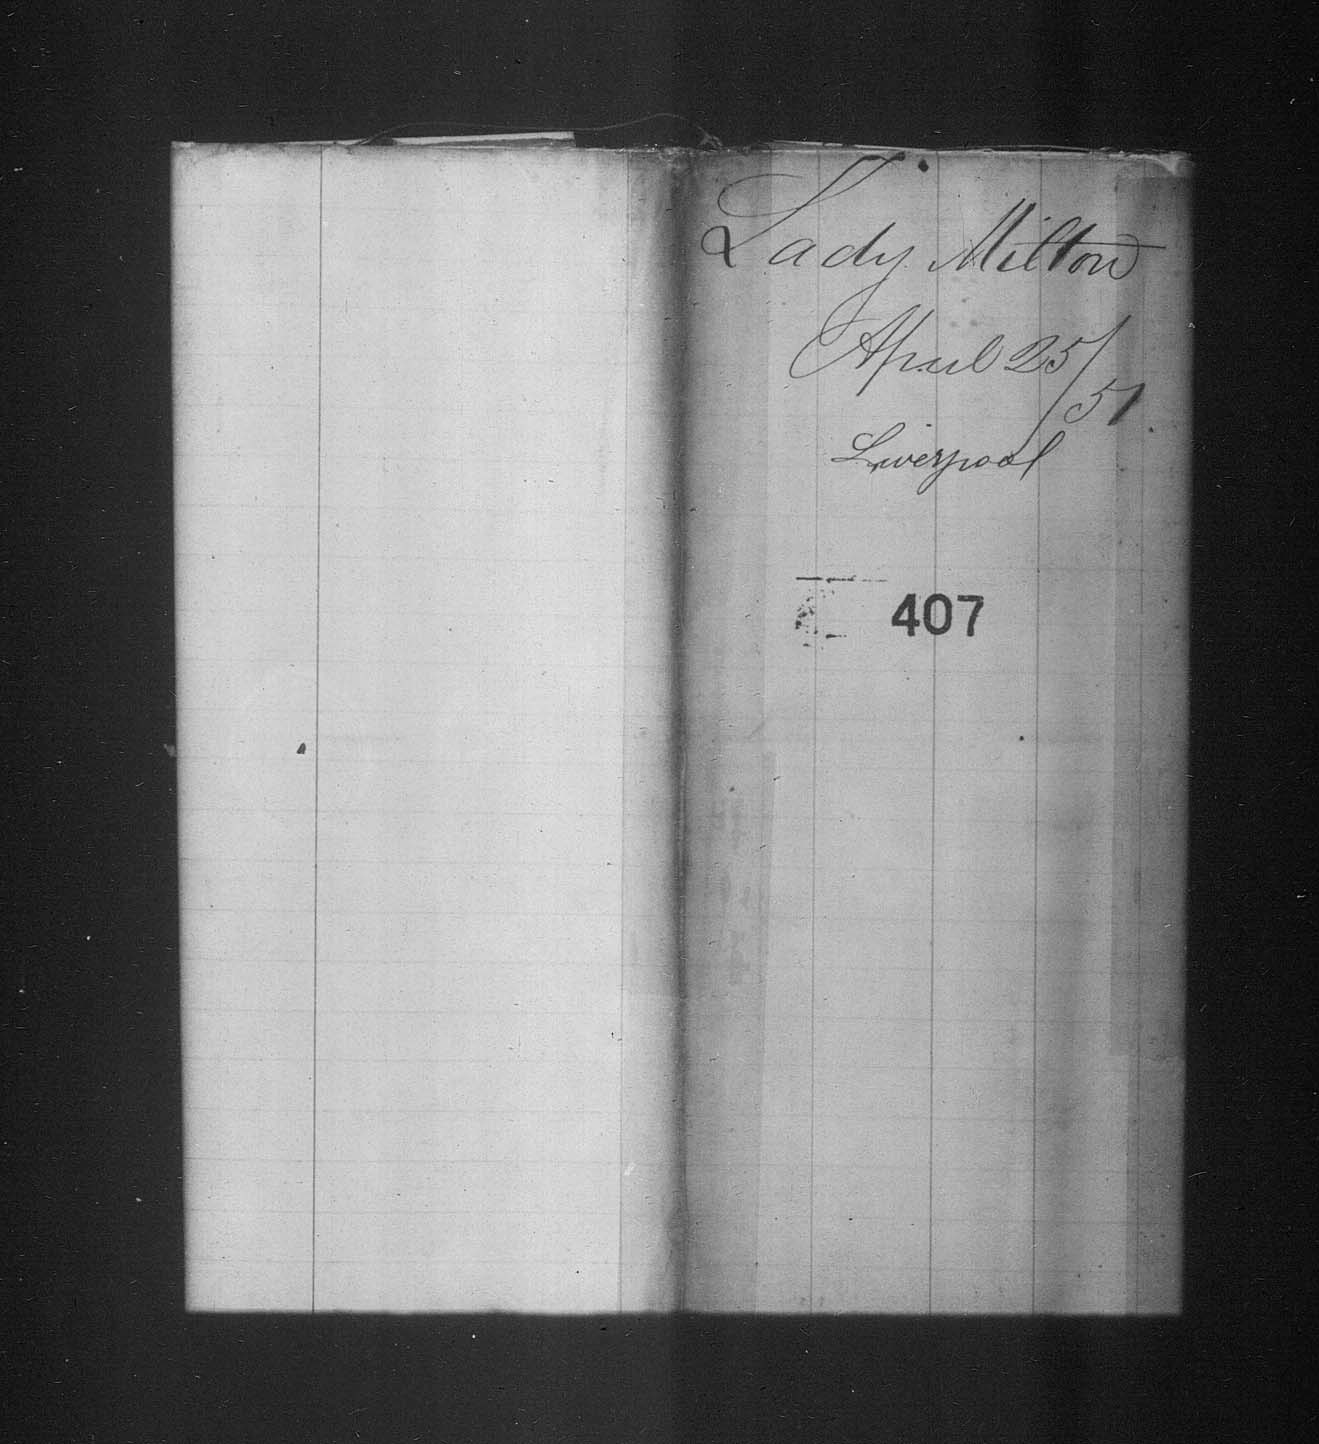 Lady Milton
April 25/
51
Liverpool
407